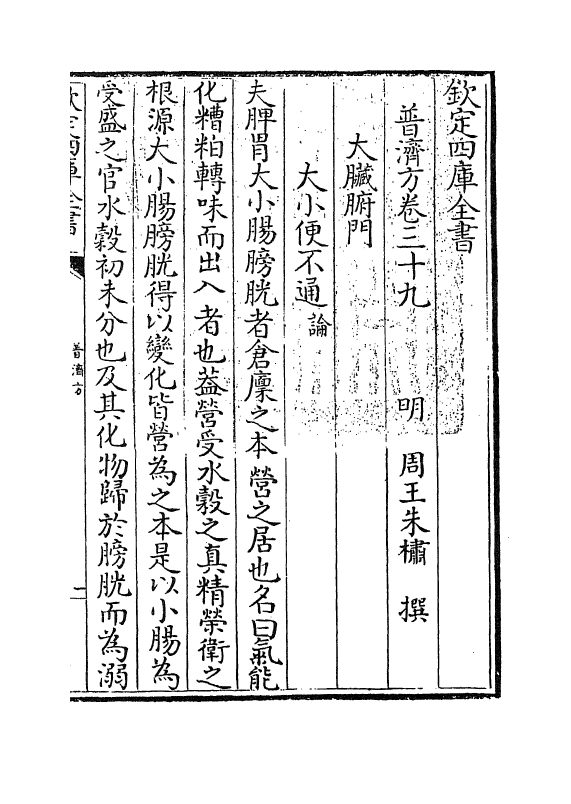 欽定四庫全書
普濟方卷三十九 明 周王朱橚 撰
大臟腑門
大小便不通論
夫脾胃大小腸膀胱者倉廩之本營之居也名曰氣能
化糟粕轉味而出入者也葢營受水穀之真精榮衛之
根源大小腸膀胱得以變化皆營為之本是以小腸為
受盛之官水穀初未分也及其化物歸於膀胱而為溺
欽定四庫全書
普濟方
一